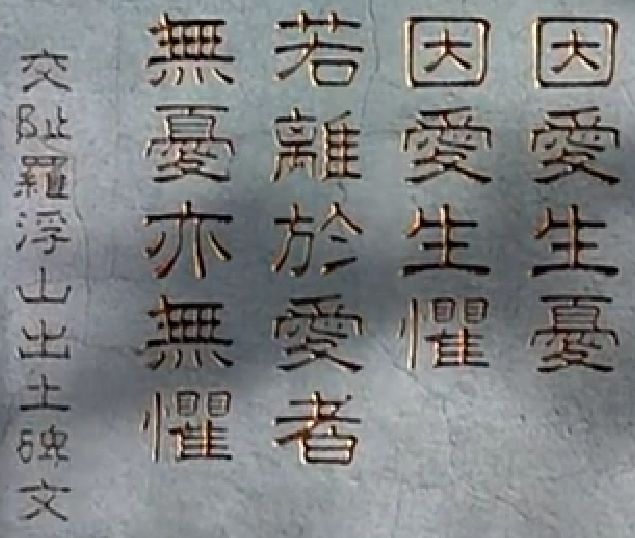 因愛生憂
因愛生懼
若離於愛者
無憂亦無懼
交阯羅浮山出土碑文